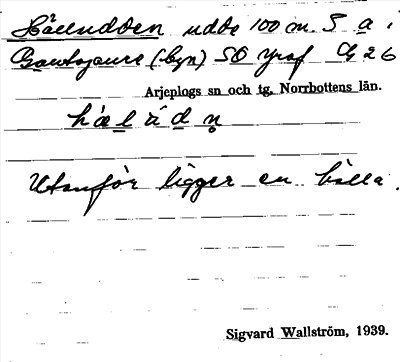 Hälludden udde 100 m. S a.
Bautojaure (byn) SO graf G 26
Arjeplogs sn och tg, Norrbottens län.
hälúdn̥
Utanför ligger en hälla.
Sigvard Wallström, 1939.